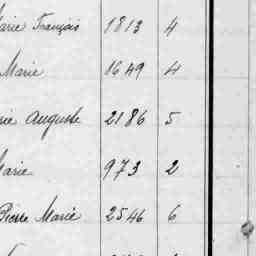 Marie François 1813 4
Marie 1649 4
Marie Auguste 2186 5
Marie 973 2
Pierre Marie 2546 6